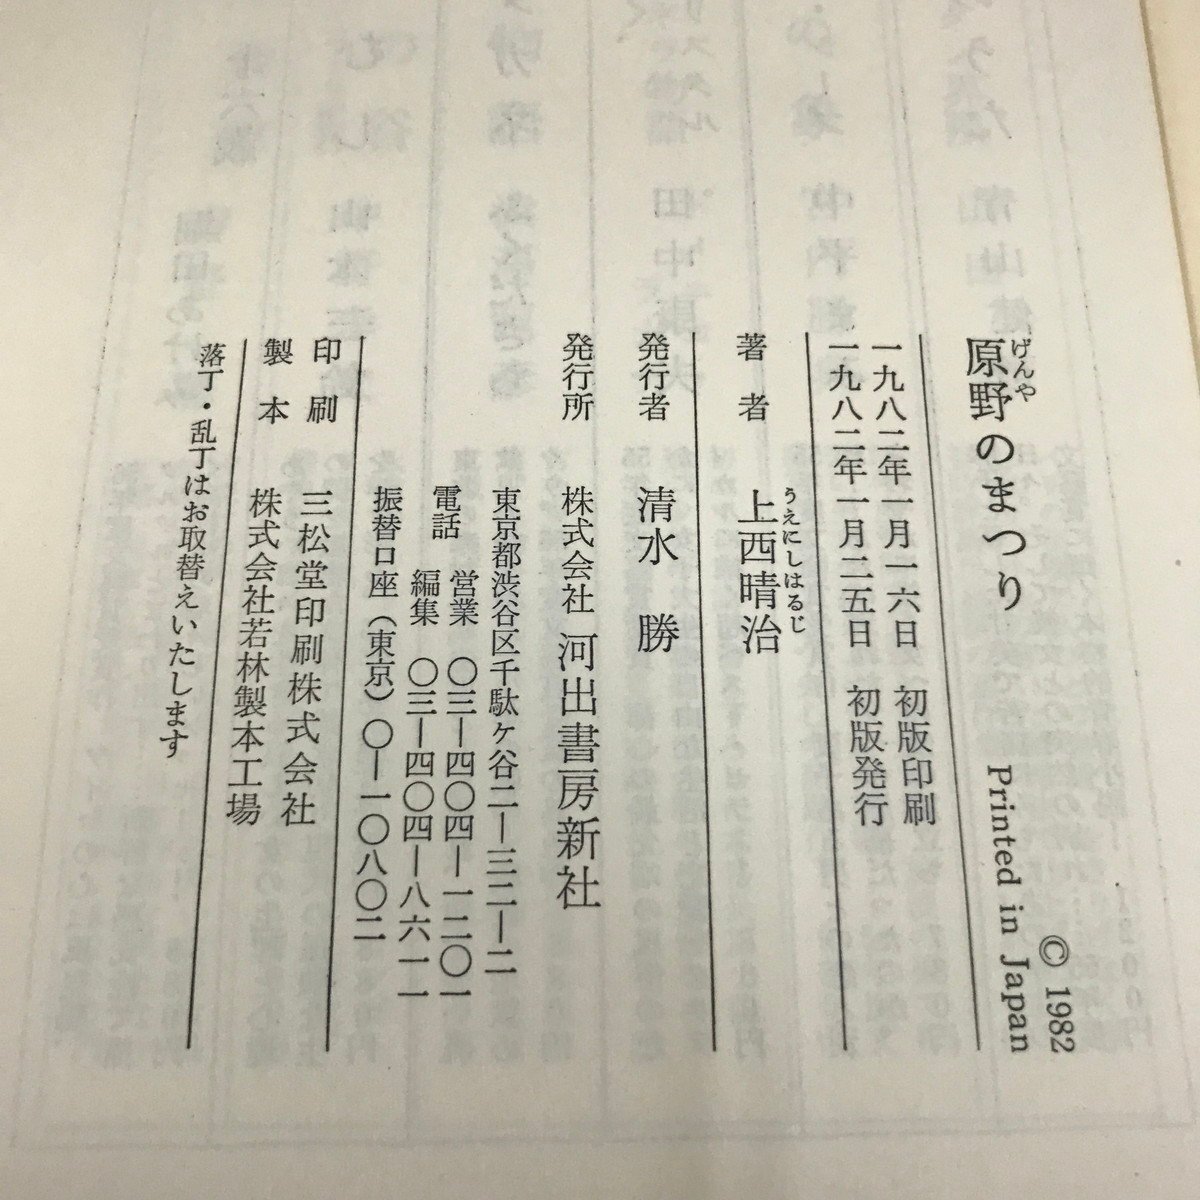 © 1982
Printed in Japan
げんや
原野のまつり
一九八二年一月一六日 初版印刷
一九八二年一月二五日 初版発行
うえにしはるじ
著者 上西晴治
発行者 清水 勝
発行所 株式会社 河出書房新社
東京都渋谷区千駄ケ谷二―三二―二
電話 営業 〇三―四〇四―一二〇一
編集 〇三―四〇四―八六一一
振替口座(東京)〇―一〇八〇二
印刷 三松堂印刷株式会社
製本 株式会社若林製本工場
落丁・乱丁はお取替えいたします